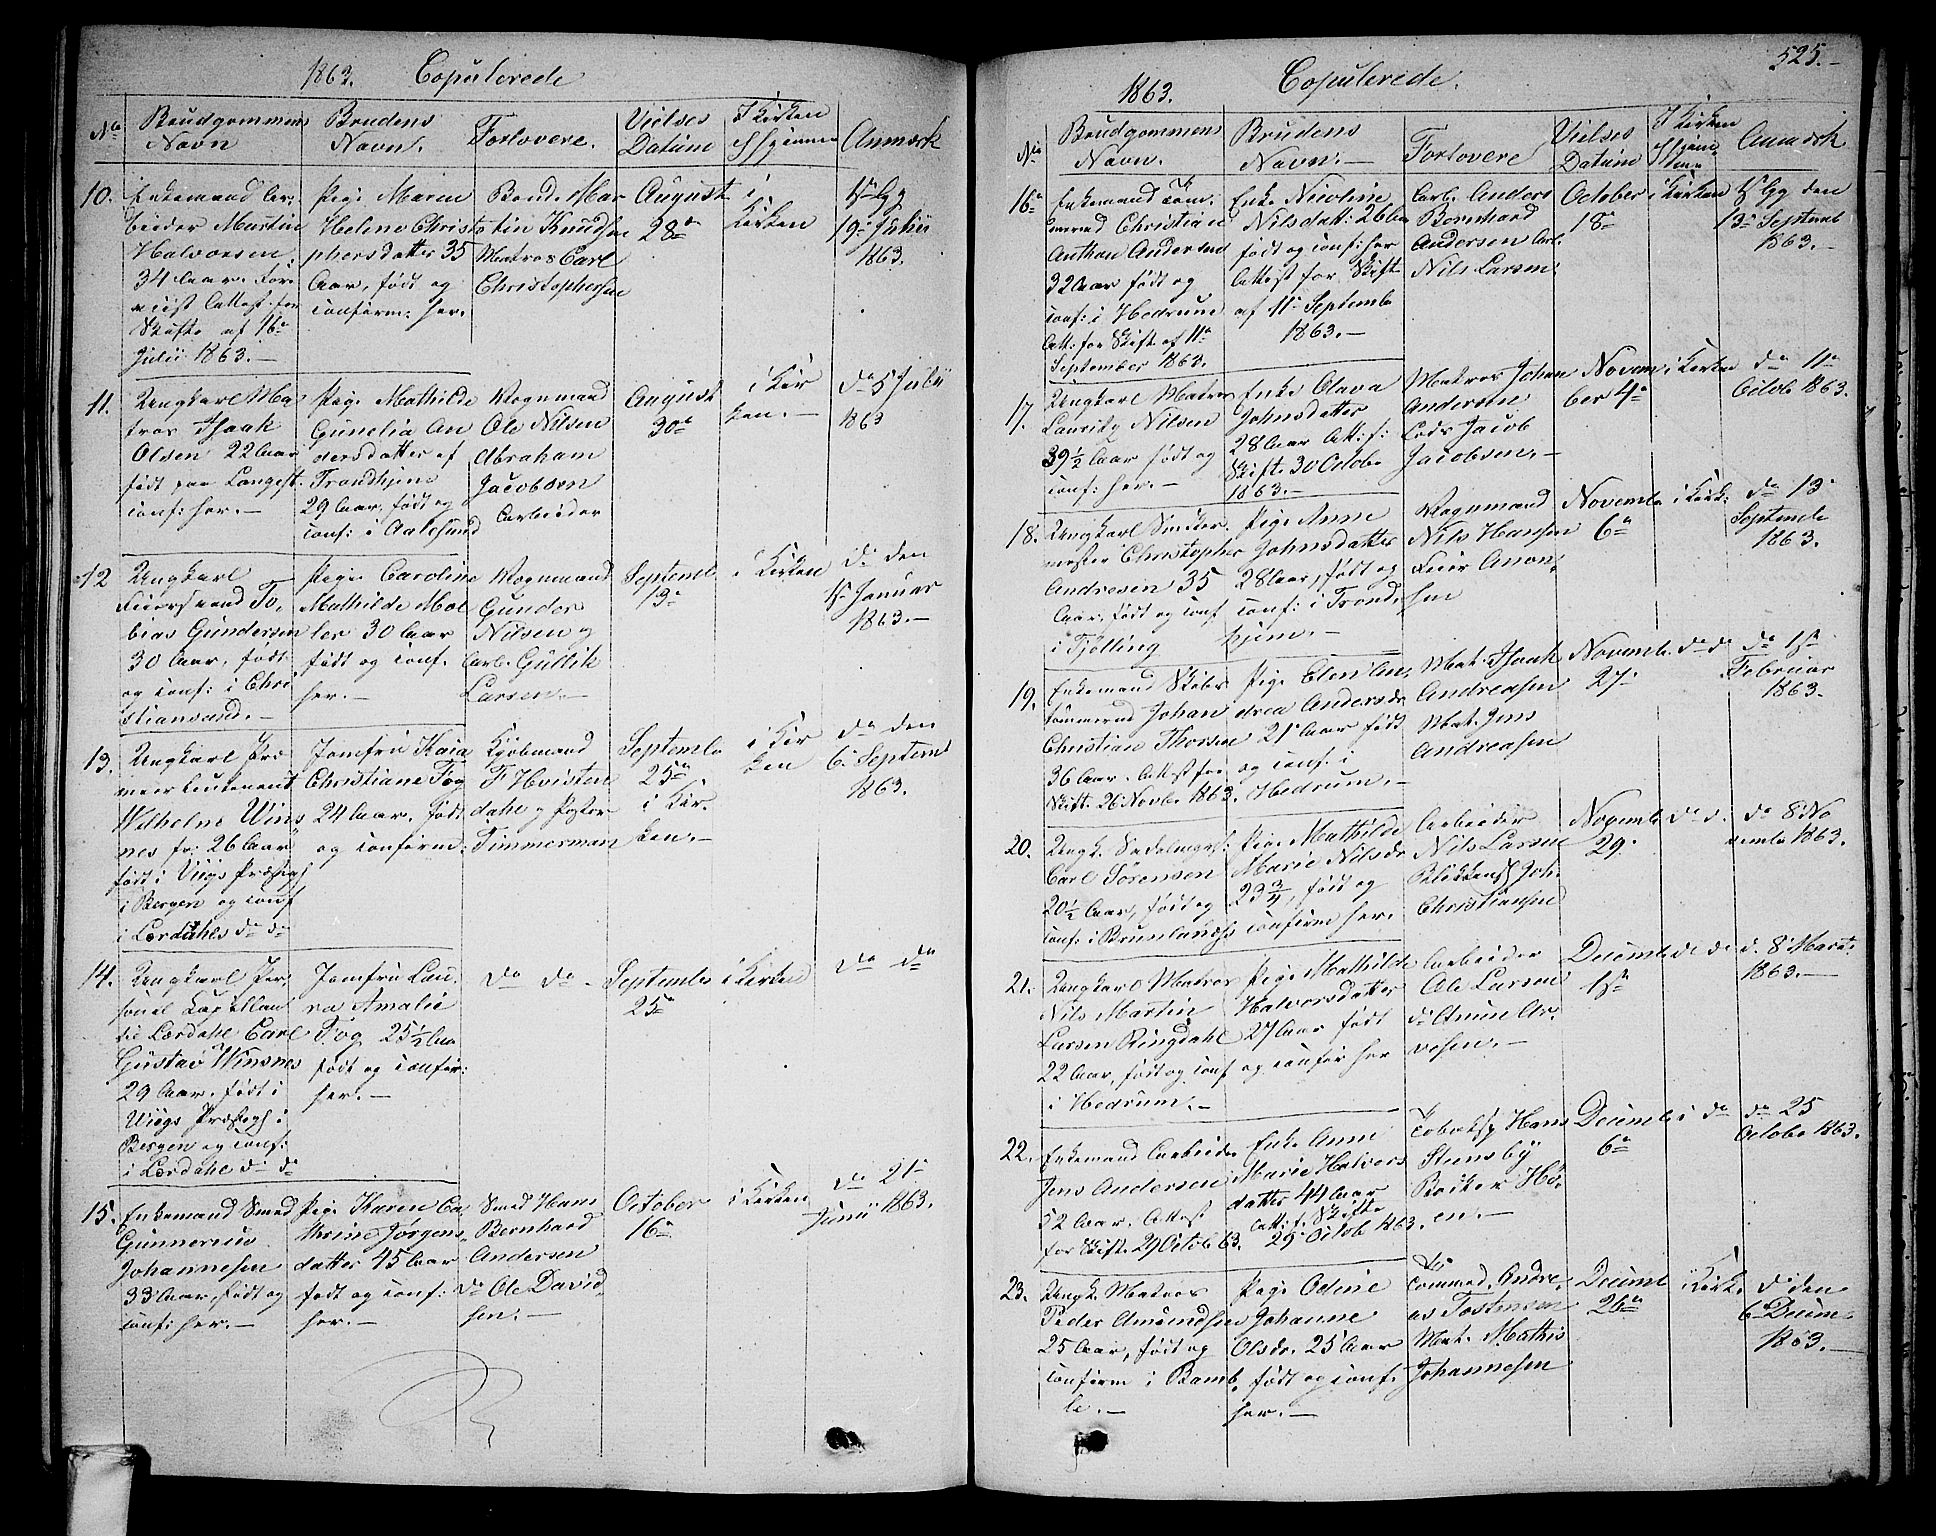 1863. Copulerede
No.
Brudgommens Navn
Brudens Navn.
Forlovere.
Vielses Datum
I Kirken Hjemme
Anmærk
10.
Enkemand Ar-
beider Martin
Halvorsen,
34 Aar. Fore-
vist Attest for
Skifte af 16de
Julii 1863.—
Pige Maren
Helene Christo-
phersdatter 35
Aar, født og
confirm: her.
Bend. Mar
tin Knudsen
Matros Carl
Christophersen
August
28de
i
Kirken
1ste Lg
19de Julii
1863.
11.
Ungkarl Ma-
tros Isaak
Olsen 22 Aar
født paa Langest.
conf: her.—
Pige Mathilde
Gunelia An
dersdatter af
Trondhjem
29 Aar, født og
conf: i Aalesund
Vognmand
Ole Nilsen
Abraham
Jacobsen
Arbeider
August
30te
i Kir
ken.—
do 5 Julii
1863
12
Ungkarl
Feiersvend To-
bias Gundersen
30 Aar, født
og conf: i Chri
stiansand.—
Pige Caroline
Mathilde Møl
ler 30 Aar
født og conf.
her.—
Vognmand
Gunder
Nilsen og
Arb. Gullik
Larsen.—
Septemb
13de
i Kirken
do den
1ste Januar
1863.—
13.
Ungkarl Pre-
meier Leutenant
Wilhelm Wins
nes fr: 26 Aar
født i Viigs Præstegj
i Bergen og conf
i Lærdahls do do
Jomfru Kaja
Christiane Fog
24 Aar. født
og confirm:
Kjøbmand
F Hvisten
dahl og Poster
Timmerman
Septembr
25de
i Kir-
ken.—
i Kir
ken
do den
6. Septemb
1863.
14.
Ungkarl Per-
sonel Kapellan
til Lærdahl Carl
Gustav Winsnes
29 Aar. født i
Viigs Præstegj i
Bergen og conf:
i Lærdahl do do
Jomfru Lau-
ra Amalie
Fog 25½ Aar
født og confir:
her.—
do do—
September
25de
i Kirken
do do
15.
Enkemand Smed
Gunnerius
Johannesen
33 Aar, født og
conf: her.—
Pige Karen Ca
thrine Jørgens-
datter 45 Aar
født og conf:
her.—
Smed Hans
Bernhard
Andersen
do Ole David
sen.—
October
16de
i Kirken
do 21de
Junii 1863.
525.—
1863. Copulerede.
No
Brudgommens Navn.
Brudens Navn.—
Forlovere
Vielses Datum
I Kirken Hjemme
Anmærk
16de
Enkemand Tøm-
mermd Christian
Anthon Andersen
32 Aar født og
conf: i Hedrum
Att: for Skift. af 11te
September 1863.
Enke Nicoline
Nilsdatt: 26 Aar
født og conf: her
Attest for Skift
af 11te Septemb
1863.—
Arb. Anders
Bernhard
Andersen Arb.
Nils Larsen
October
18de
i Kirken
1ste Lg den
13de Septemb
1863.—
17.
Ungkarl Matros
Lauritz Nilsen
39½ Aar født og
conf: her.—
Enke Olava
Johnsdatter
28 Aar Att: f:
Skift. 30 Octobr
1863.—
Matros Johan
Andersen
Lods Jacob
Jacobsen.—
Novem
ber 4de
i Kirken
do 11te
Octob 1863.
18.
Ungkarl Snedker-
mester Christopher
Andresen 35
Aar. født og conf
i Tjølling
Pige Anne
Johnsdatter
28 Aar, født og
conf: i Trond-
hjem.—
Vognmand
Nils Hansen
Feier Anon-
sen
Novembr
6te
i Kirk:
do 13de
Septemb
1863.
19.
Enkemand Skibs-
tømmermd Johan
Christian Thorsen
36 Aar. Attest for
Skift. 26 Novbr 1863.
Pige Elen An-
drea Andersdr
21de Aar født
og conf: i
Hedrum.—
Mat. Isaak
Andreasen
Mat. Jens
Andreasen
Novemb.
27de
do do
do 1ste
Februar
1863.
20.
Ungk. Sadelmagers:
Carl Sørensen
20½ Aar, født og
conf: i Brunlanæs
Pige Mathilde
Marie Nilsdr
23¾, født og
confirm her.
Arbeider
Nils Larsen
Blokkemf Joh.
Christiansen
Novemb
29de
do do.
do 8 No
vembr 1863.
21.
Ungkarl Matros
Nils Martin
Larsen Ringdahl
22 Aar, født og conf
i Hedrum.—
Pige Mathilde
Halvorsdatter
27 Aar født
og confir her
Arbeider
Ole Larsen
do Anun Ar-
vesen.—
Decemb
1ste
do do
do 8 Marts
1863.—
22.
Enkemand Arbeider
Jens Andersen
52 Aar. Attest
for Skift. 29 Octob 63.
Enke Anne
Marie Halvors
datter 44 Aar
Att: f. Skifte
29de Octob 1863.
Tobaksp Hans
Stensby
Bøiker Hø-
en.—
Decemb
6te
i do
do 25
Octobr 1863.
23.
Ungk. Matros
Peder Amundsen
25 Aar, født og
confirm i Bamb-
le.—
Pige Odine
Johanne
Olsdr. 25 Aar
født og conf.
her.—
Commed. Andre-
as Tostensen
Mat. Mathis
Johannesen
Decemb
26de
i Kirk.
do den
6te Decem-
1863.—